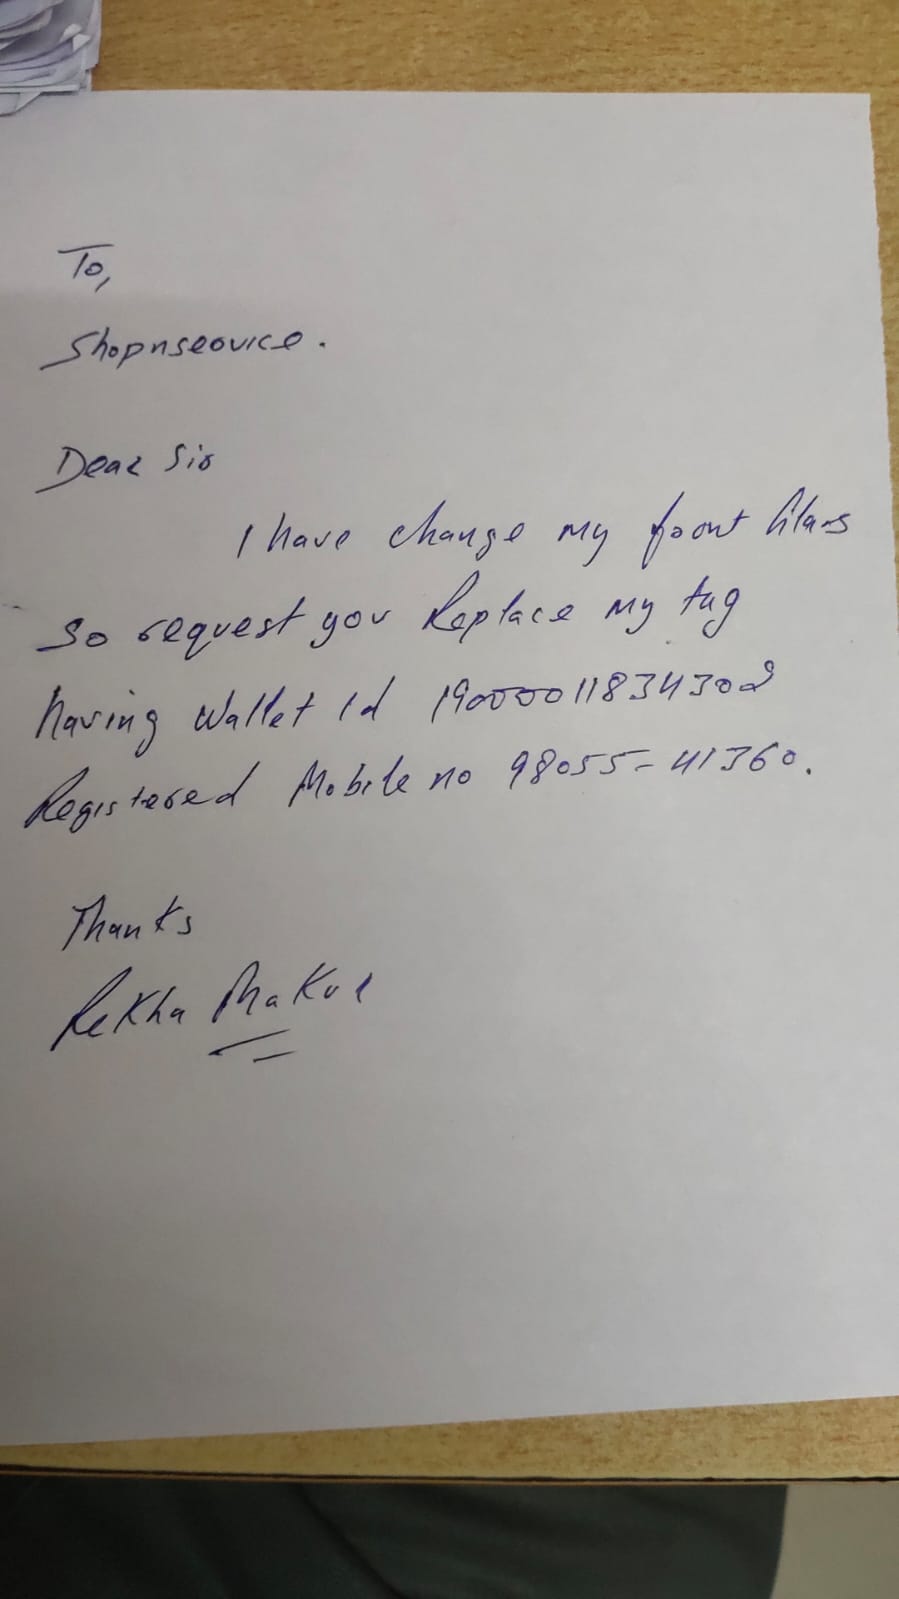 To,
Shopnservice.
Dear Sir
I have change my front Glass
So request you Replace my tag
having Wallet Id
Registered Mobile no 98055-41360.
Thanks
Rekha